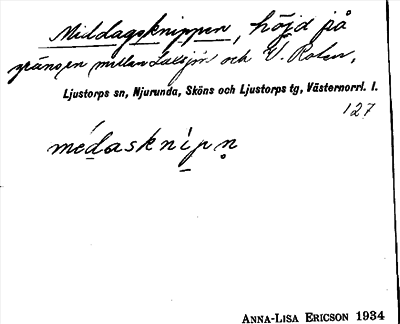 Middagsknippen, höjd på
gränsen mellan Laksjön och V. Roten.
Ljustorps sn, Njurunda, Sköns och Ljustorps tg, Västernorrl. l.
127
médasknipn
ANNA-LISA ERICSON 1934